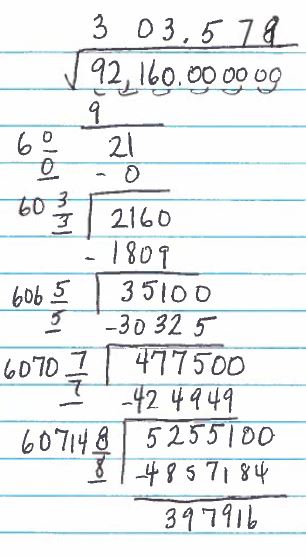 3 03.578
√92,160.000000
9
60 21
0 - 0
603 2160
3 - 1809
6065 35100
5 -30325
60707 477500
7 -424949
607148 5255100
8 -4857184
397916